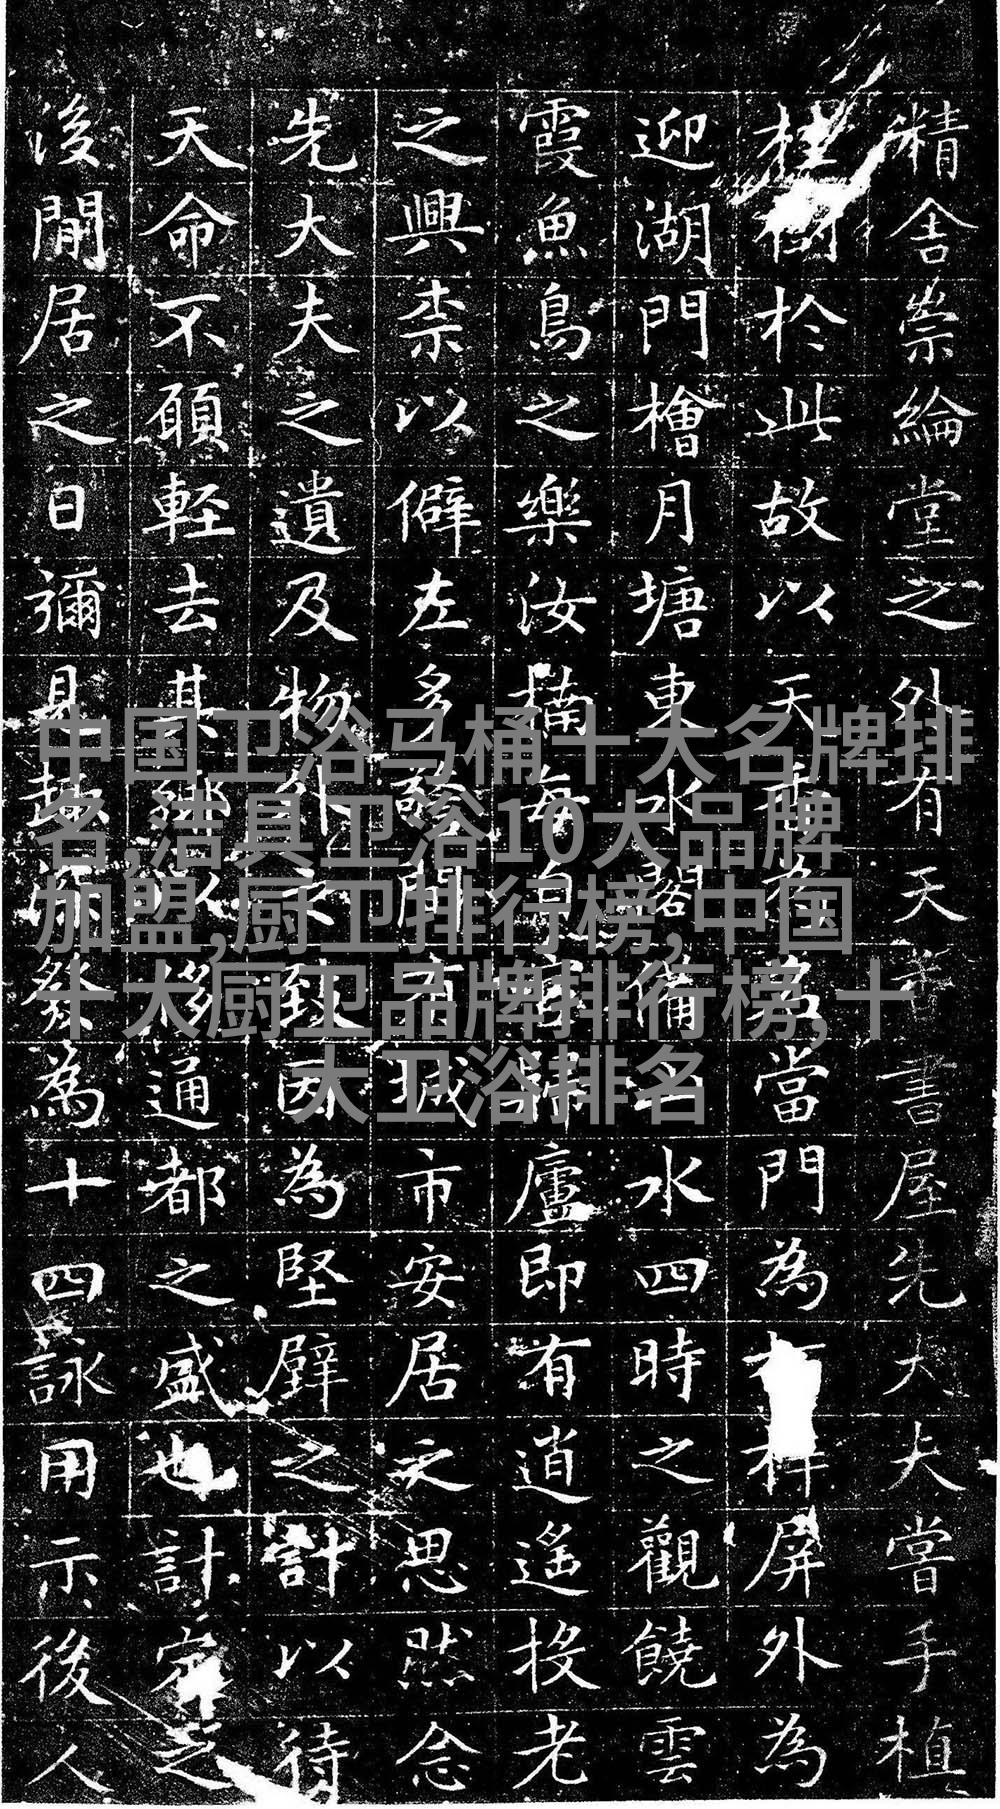 精舍崇綸堂之外有天香書屋先大夫嘗手植
桂樹於此故以天香為名當門為 屏外為
迎湖門檜月塘東水閣備山水四時之觀饒雲
霞魚鳥之樂汝楠每自廬即有逍遙投老
之興柰以僻左多發閒有城市安居之思然念
先大夫之遺及物外之致因為堅壁之計以待
天命不願輕去其鄉以移通都之盛也計定之
後閒居之日彌具趣 為十四詠用示後人
中国卫浴马桶十大名牌排
名,洁具卫浴10大品牌
加盟,厨卫排行榜,中国
十大厨卫品牌排行榜,十
大卫浴排名